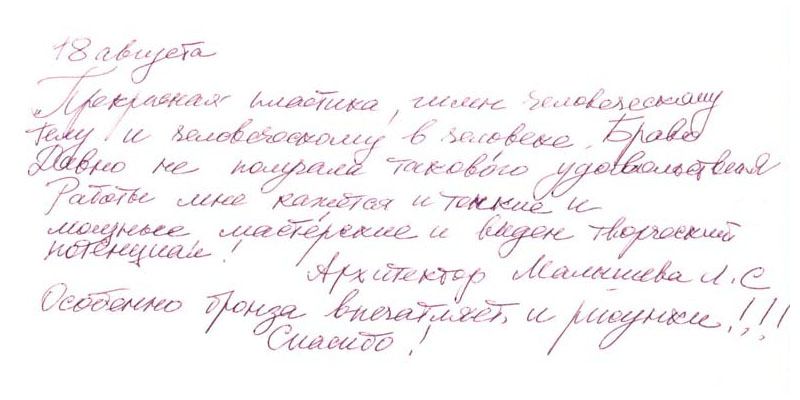 18 августа
„Прекрасная пластика, гимн человеческому
телу и человеческому в человеке. Браво
Давно не получали такового удовольствия
Работы мне кажется и тонкие и
мощные мастерские и виден творческий
потенциал!
Архитектор Малышева Л.С
Особенно бронза впечатляет и рисунки!!!
Спасибо!